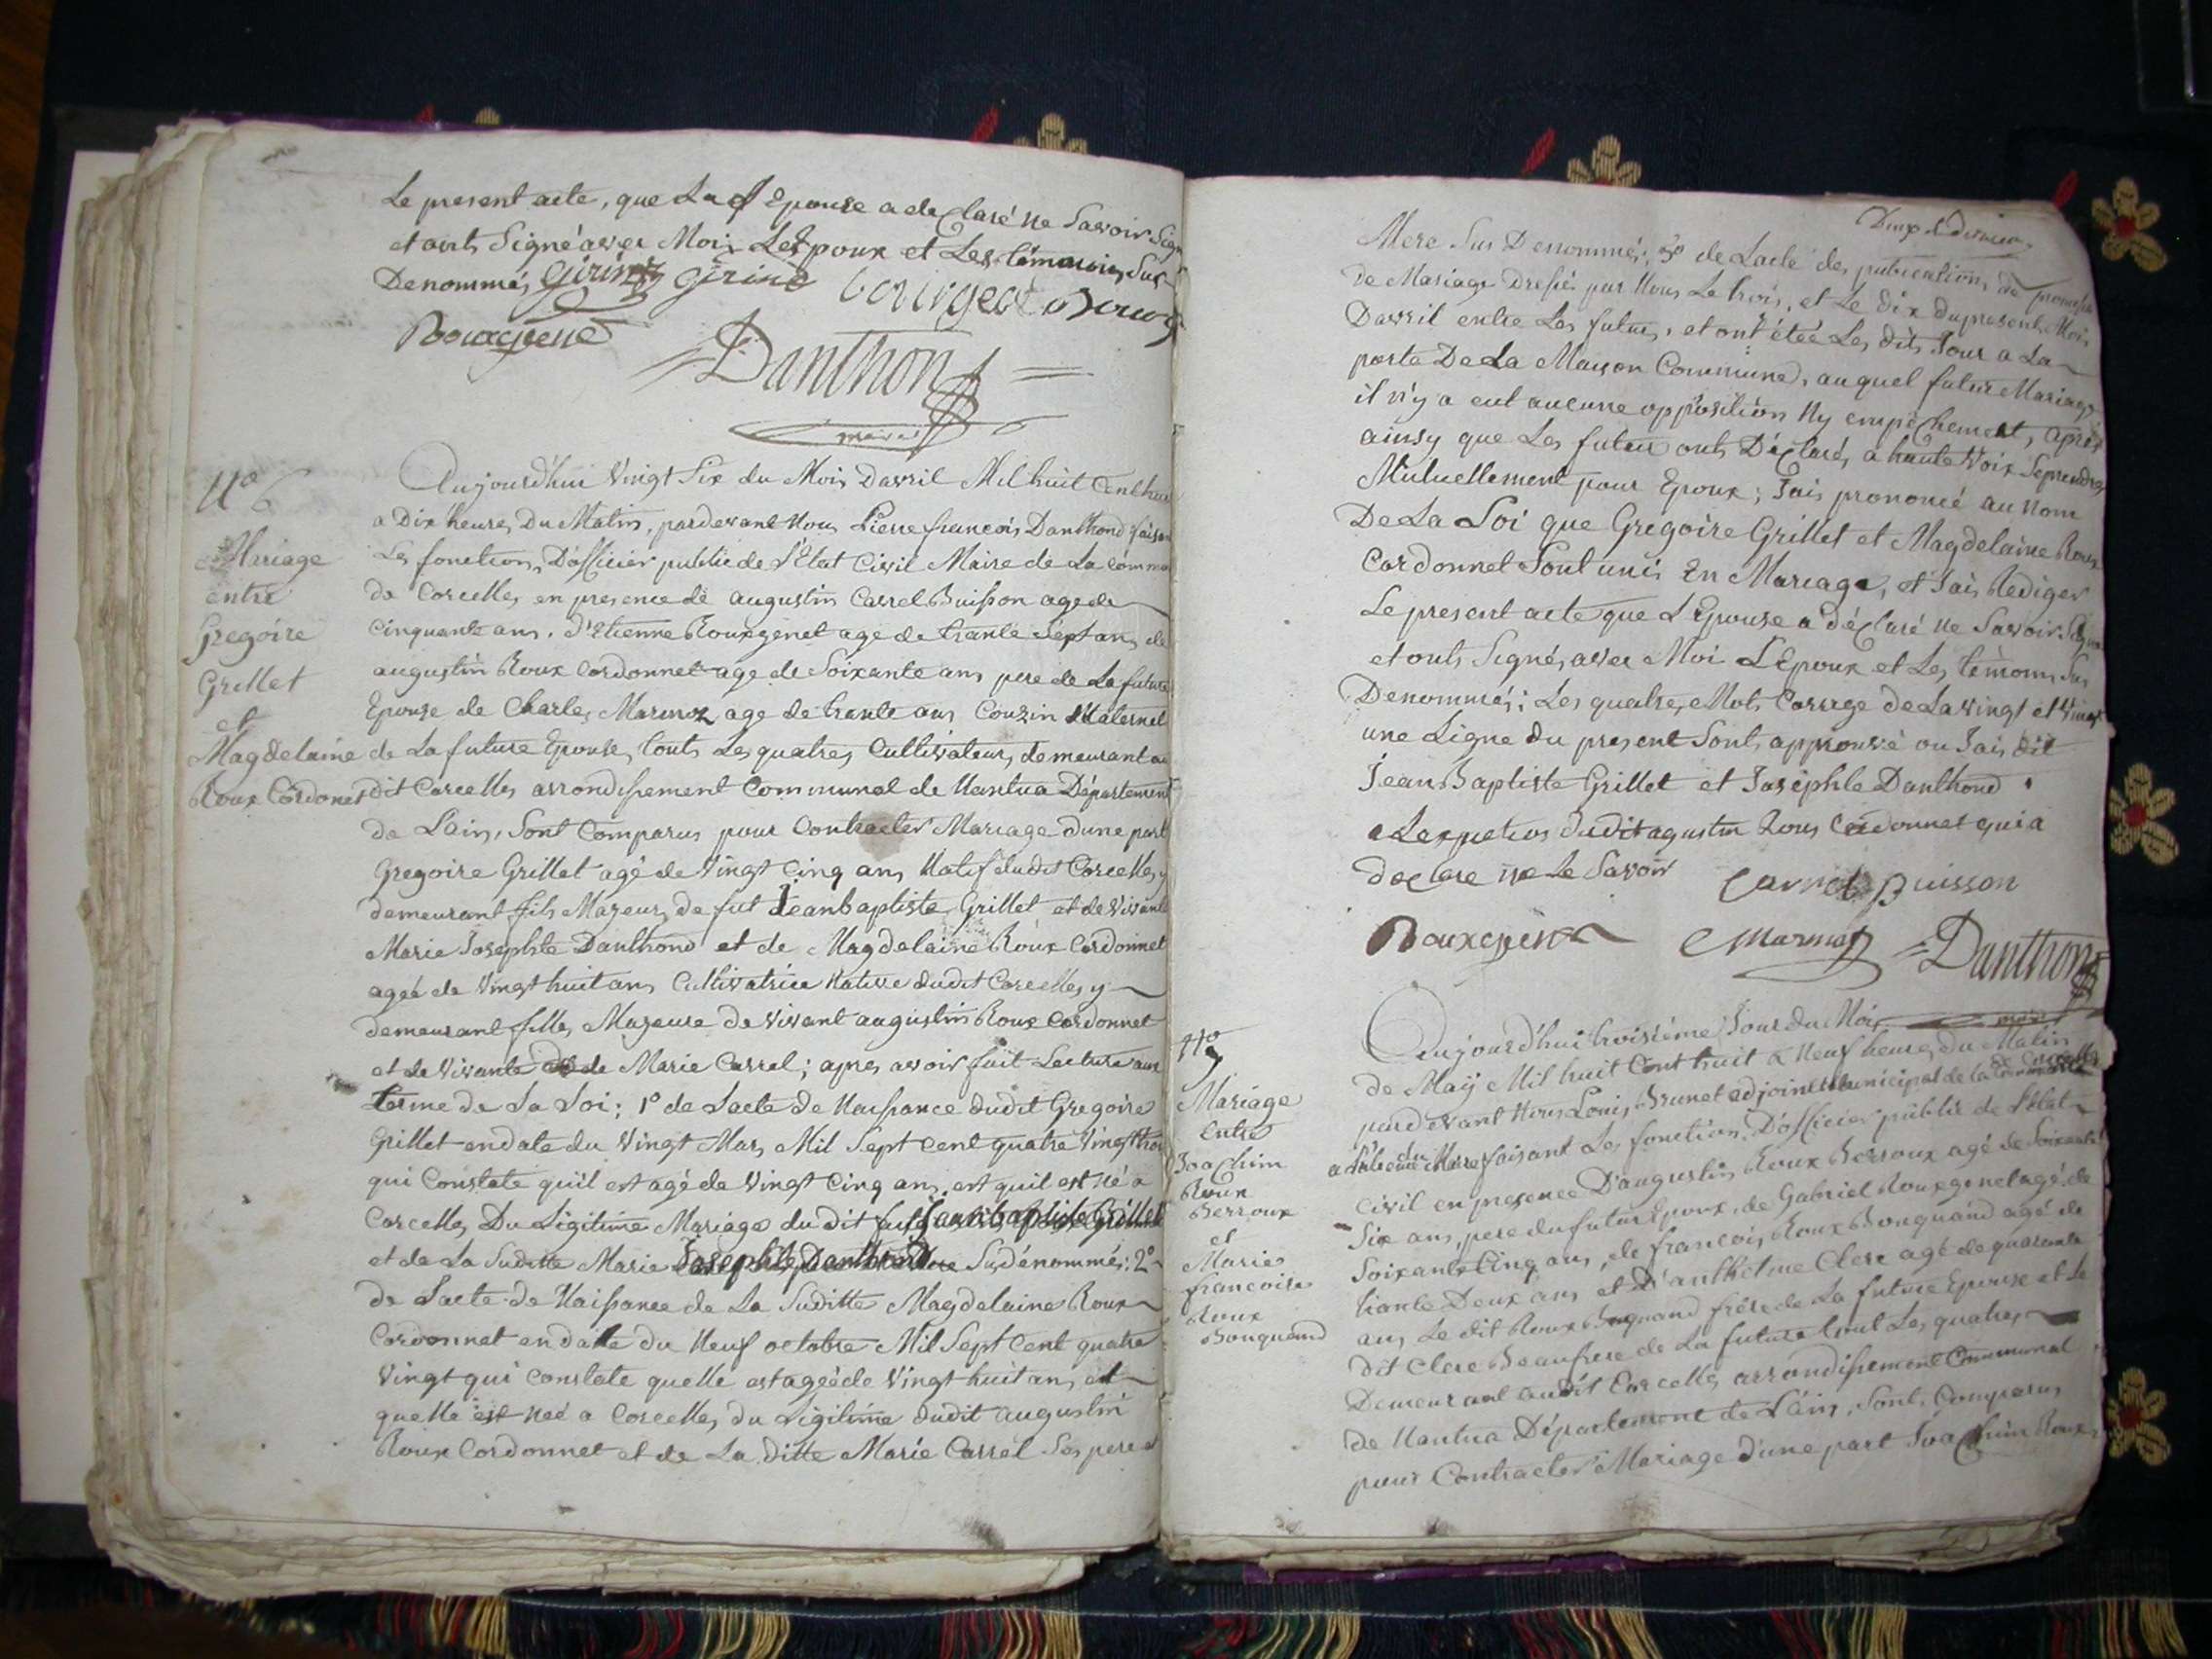 Le present acte, que La Epouse a declaré ne Savoir Sign
et onts Signé avec Moi Lepoux et Les témoins Sus
Denommés Girinz Girind bourgeat
Rouxgenet
Danthon
maire
N° 6
Mariage
entre
Gregoire
Grillet
et
Magdelaine
Roux Cordonet
Aujourd'hui Vingt Six du Mois Davril Mil huit Cent huit
a Dix heures Du Matin, pardevant Nous Pierre francois Danthond faisan
Les fonctions D'officier public de L'Etat Civil Maire de La comm
de Corcelles, en presence de augustin Carrel Buisson age de
Cinquante ans, d'Etienne Rouxgenet age de trante Sept ans, de
augustin Roux Cordonnet age de Soixante ans pere de La future
Epouse de Charles Marmoz age de trante ans Couzin Maternel
de La future Epouse, touts Les quatres Cultivateurs, demeurant au
dit Corcelles arrondissement Communal de Nantua Département
de L'ain, Sont Comparus pour Contracter Mariage dune part
Gregoire Grillet agé de Vingt Cinq ans Natif dudit Corcelles y
demeurant fils Mageur de fut Jeanbaptiste Grillet et de Vivante
Marie Josephte Danthond et de Magdelaine Roux Cordonnet
ageé de Vingt huit ans Cultivatrice Native dudit Corcelles y
demeurant fille Mageure de Vivant augustin Roux Cordonnet
et de Vivante de Marie Carrel; apres avoir fait Lecture aux
terme de La Loi; 1° de Lacte de Naissance dudit Gregoire
Grillet en date du Vingt Mars Mil Sept Cent quatre Vingt trois
qui Constate qu'il est agé de Vingt Cinq ans, est quil est Né a
Corcelles Du Ligitime Mariage du dit fut Jean baptiste Grillet
et de La Suditte Marie Josephte Danthond Susdénommés; 2°
de Lacte de Naissance de La Suditte Magdelaine Roux
Cordonnet en date du Neuf octobre Mil Sept Cent quatre
Vingt qui Constate quelle est ageé de Vingt huit ans, et
quelle est Neé a Corcelles, du Ligitime dudit augustin
Roux Cordonnet et de La ditte Marie Carrel Ses pere et
Mere Sus Denommés; 3° de Lacte des publications de promesse
de Mariage Dressés par Nous Le trois, et Le Dix du present Mois
Davril entre Les futurs, et ont étée Les dits Jour a La
porte De La Maison Commune, auquel futur Mariage
il n'y a eut aucune oppòsition Ny empéchement, apres
ainsy que Les futurs onts Déclaré, a haute Voix Seprendre
Mutuellement pour Epoux; Jais prononcé au Nom
De La Loi que Gregoire Grillet et Magdelaine Roux
Cordonnet Sont unis En Mariage, et Jais Rediger
Le present acte que L'Epouse a déclaré ne Savoir Signe
et onts Signés avec Moi L'Epoux et Les témoins Sus
Denommés; Les quatres Mots Corrigé de La vingt et Vingt
une Ligne du present Sonts approuvé ou Jais dit
Jean Baptiste Grillet et Joséphte Danthond
a Lexsetion dudit agustin Roux Cordonnet qui a
declare ne Le Savoir Carrel Buisson
Rouxgenet C Marmoz Danthon
maire
N° 7
Mariage
Entre
Joachim
Roux
Berroux
et
Marie
francoise
Roux
Bouquand
Aujourd'hui troisième Jour du Mois
de Maÿ Mil huit Cent huit a Neuf heures du Matin
pardevant Nous Louis Brunet adjoint Municipal de la Commune de Corcelles
du Maire faisant Les fonctions D'officier public de L'état
Civil en presence D'augustin Roux Berroux agé de Soixante
Six ans, pere du futur Epoux, de Gabriel Rouxgenet agé de
Soixante Cinq ans, de francois Roux Bouquand agé de
trante Deux ans et D'anthelme Clerc agé de quarante
ans, Le dit Roux Bouquand frère de La future Epouse et Le
dit Clerc Beaufrere de La future tout Les quatres
Demeurant audit Corcelles arrondissement Communal
de Nantua Département de L'ain, Sont Comparus
pour Contracter Mariage d'une part Joachim Roux